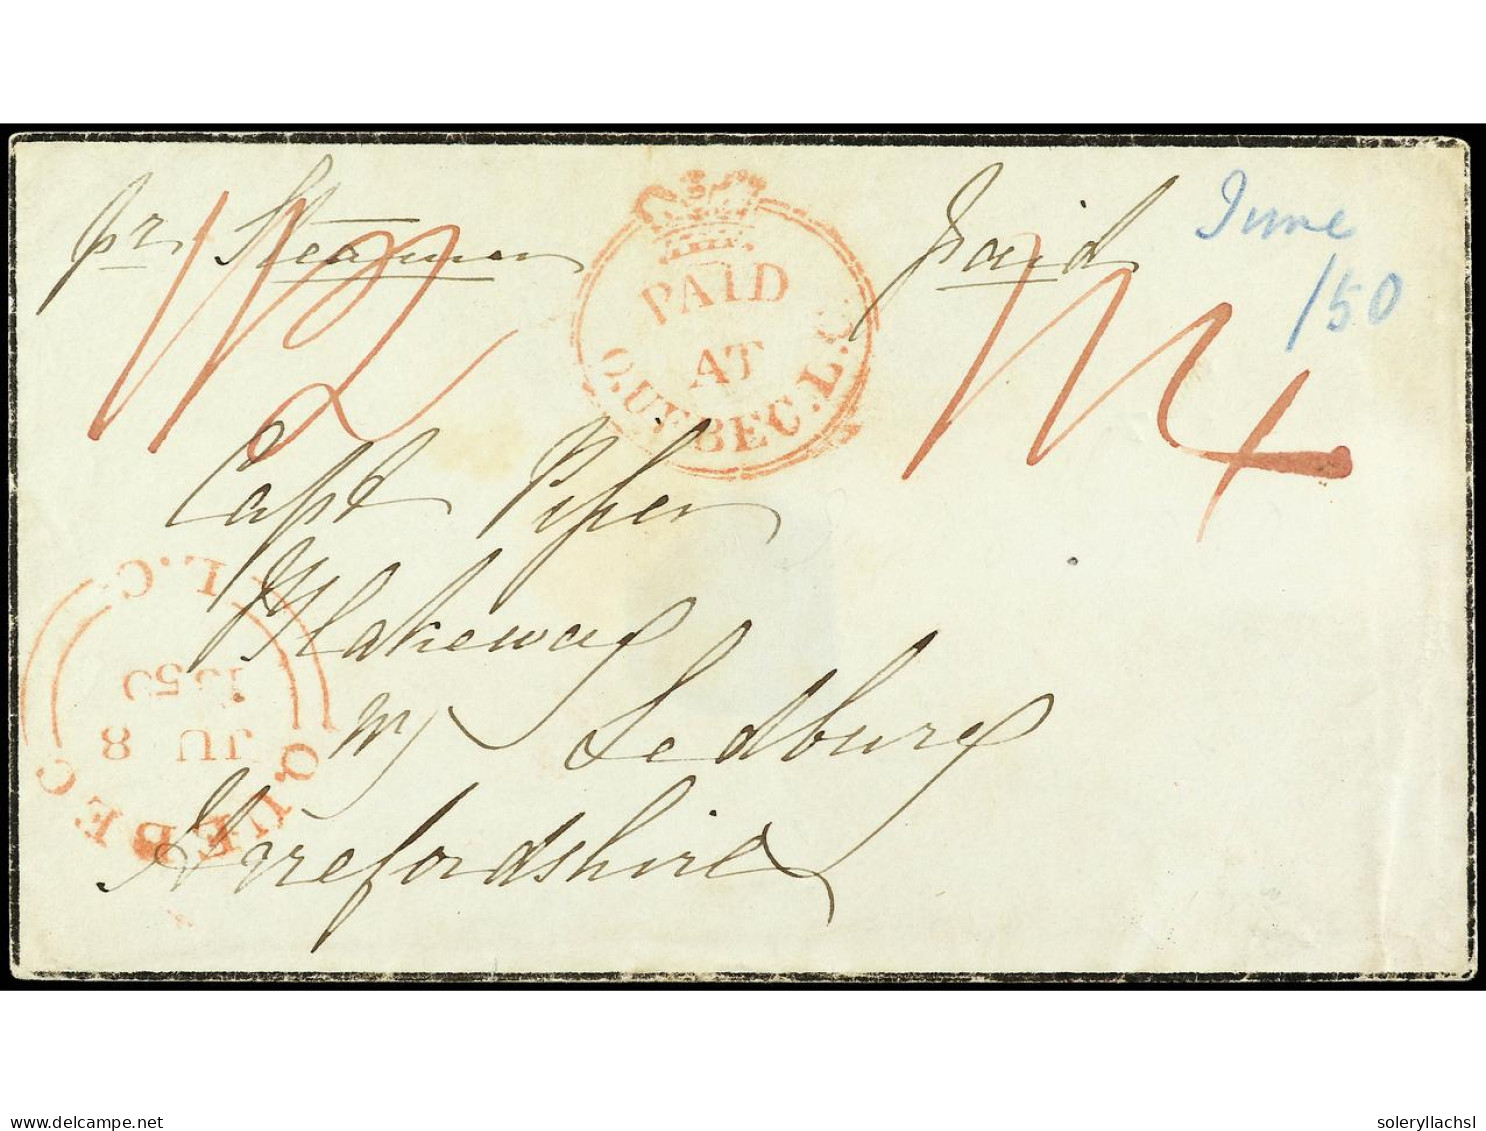 pr Steamer
Paid
June
/50
1/2
1/4
PAID
AT
QUEBEC.L.C
Capt Piper
Blakeway
Ny Ledbury
Herefordshire
QUEBEC L.C.
JU 8
1850
delcampe.net
soleryllachsl